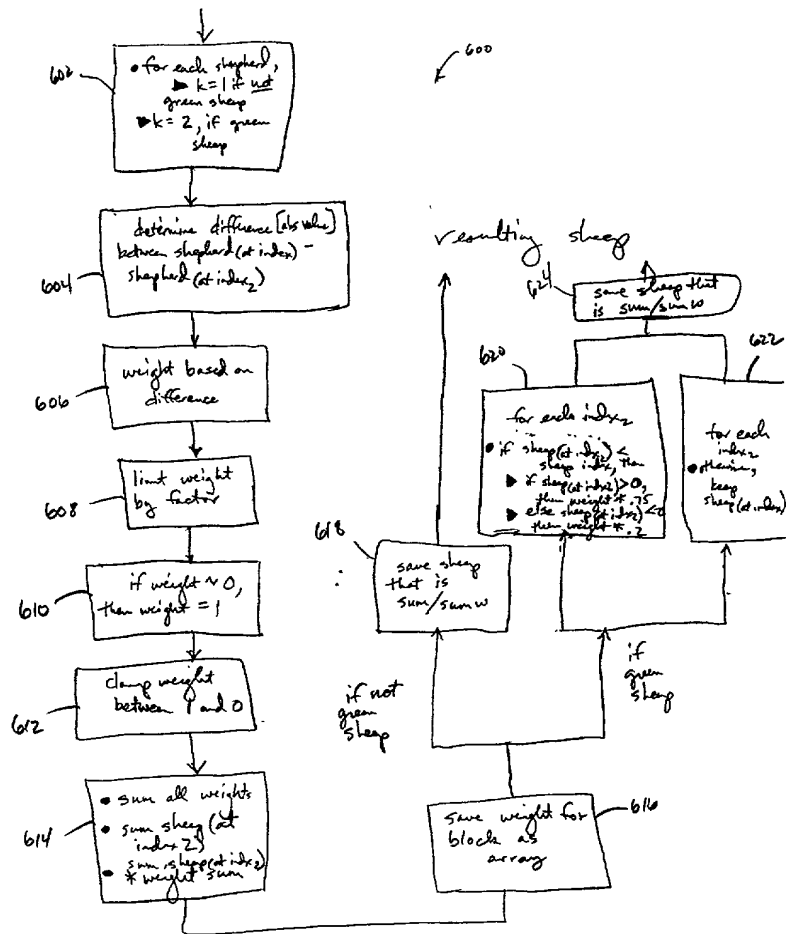 600
602
• for each shepherd,
► k=1 if not
green sheep
► k = 2, if green
sheep
604
determine difference [abs value]
between shepherd (at index) -
shepherd (at index2)
606
weight based on
difference
608
limit weight
by factor
610
if weight ~ 0,
then weight = 1
612
clamp weight
between 1 and 0
614
• sum all weights
• sum sheep (at
index 2)
sum sheep (at indx2)
• * weight sum
616
save weight for
block as
array
if not
green
sheep
if
green
sheep
618
save sheep
that is
sum/sum w
620
for each indx2
• if sheep (at indx2) <
sheep index, then
► if sheep (at indx2) > 0,
then weight * .75
► else sheep (at indx2) < 0
then weight * .2
622
for each
index2
• otherwise,
keep
sheep (at index)
624
save sheep that
is sum/sum w
resulting sheep